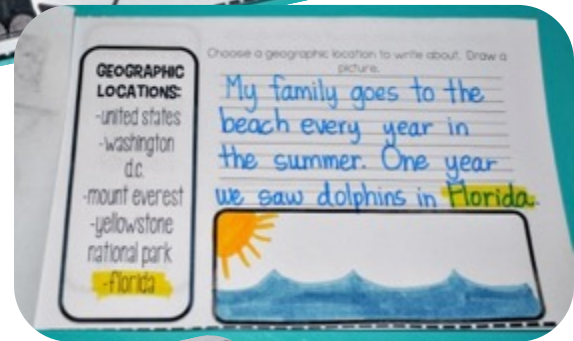 GEOGRAPHIC
LOCATIONS:
-united states
-washington
d.c.
-mount everest
-yellowstone
national park
-florida
Choose a geographic location to write about. Draw a
picture.
My family goes to the
beach every year in
the summer. One year
we saw dolphins in Florida.